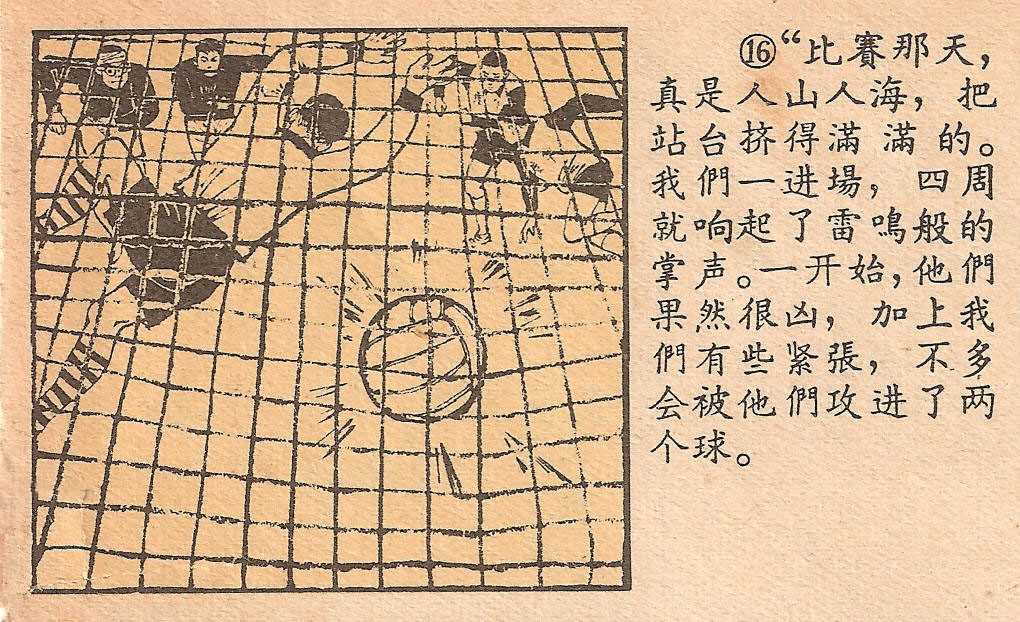 ⑯“比賽那天，
真是人山人海，把
站台挤得滿滿的。
我們一进場，四周
就响起了雷鳴般的
掌声。一开始，他們
果然很凶，加上我
們有些紧張，不多
会被他們攻进了两
个球。